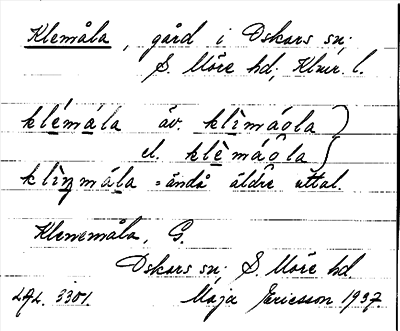 Klemåla, gård i Oskars sn;
S. Möre hd; Klmr. l.
klémála äv. klìmáola
el. klèmáôla
klìnmála = ändå äldre uttal.
Klenemåla, G.
Oskars sn; S. Möre hd.
LAL. 3301. Maja Ericsson 1937.